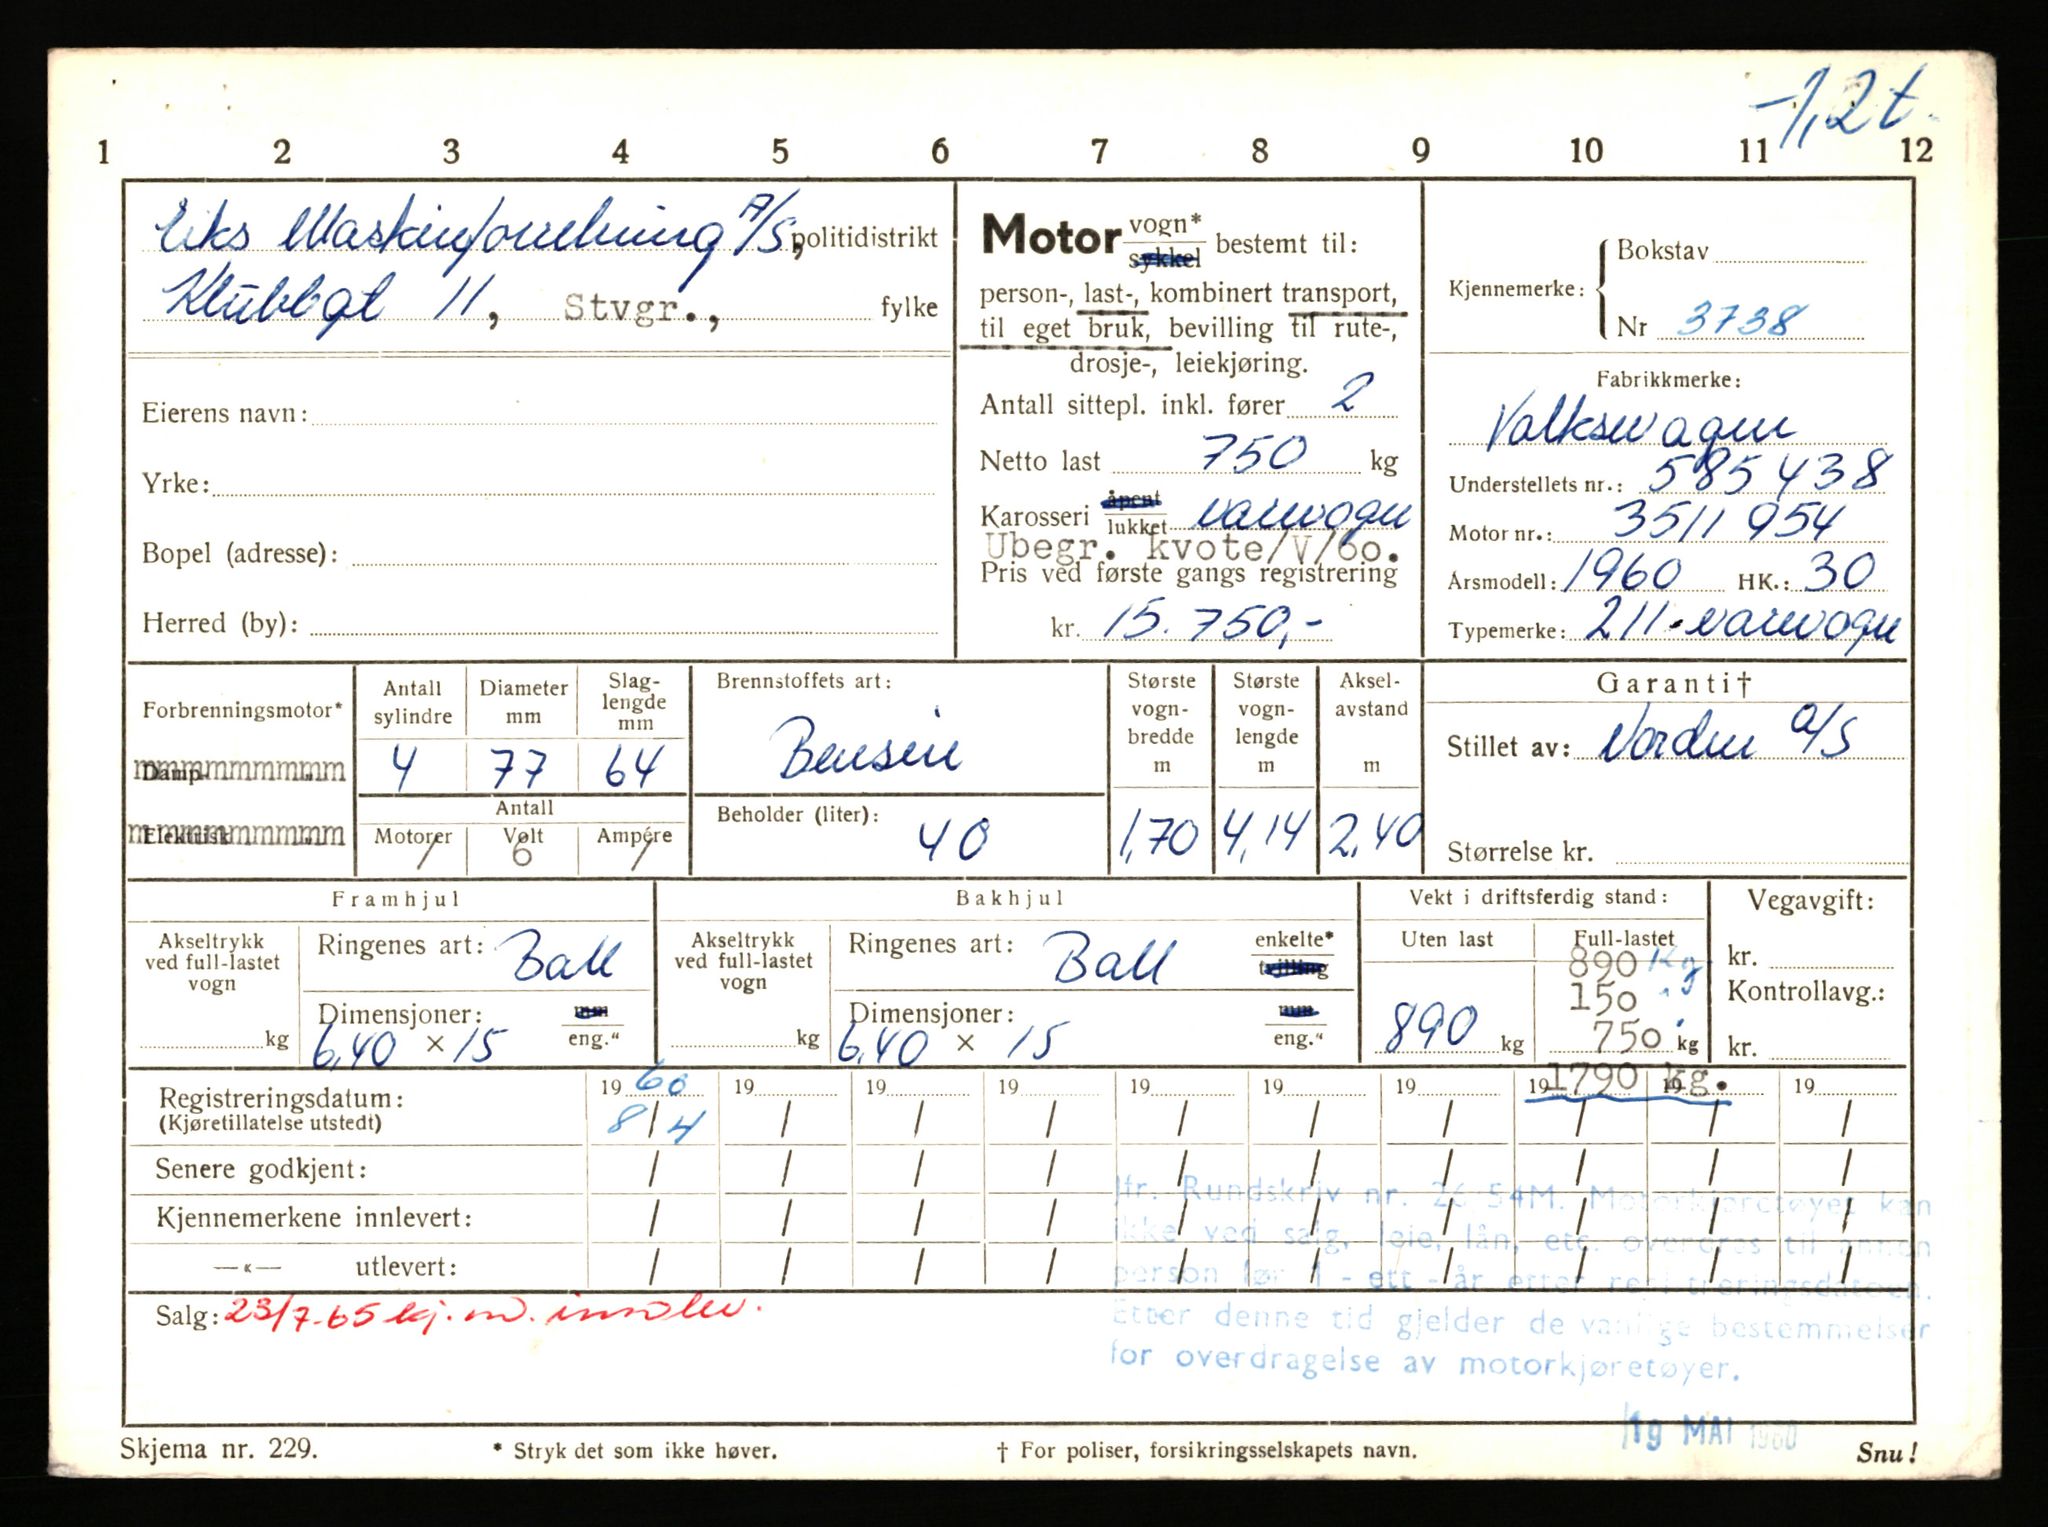 -1,2 t.
1 2 3 4 5 6 7 8 9 10 11 12
Eiks Maskinforretning A/S, politidistrikt
Klubbgt 11, Stvgr., fylke
Eierens navn:
Yrke:
Bopel (adresse):
Herred (by):
Motor vogn* sykkel bestemt til:
person-, last-, kombinert transport,
til eget bruk, bevilling til rute-,
drosje-, leiekjøring.
Antall sittepl. inkl. fører 2
Netto last 750 kg
Karosseri åpent lukket varevogn
Ubegr. kvote/V/60.
Pris ved første gangs registrering
kr. 15.750,-
Kjennemerke: Bokstav
Nr 3738
Fabrikkmerke:
Volkswagen
Understellets nr.: 585438
Motor nr.: 3511954
Årsmodell: 1960 HK.: 30
Typemerke: 211 - varevogn
Forbrenningsmotor*
Damp- „
Elektrisk „
Antall sylindre
4
Diameter mm
77
Slag-lengde mm
64
Antall
Motorer Volt Ampére
/ 6 /
Brennstoffets art:
Bensin
Beholder (liter):
40
Største vogn-bredde m
1,70
Største vogn-lengde m
4,14
Aksel-avstand m
2,40
Garanti †
Stillet av: Norden A/S
Størrelse kr.
Framhjul
Akseltrykk ved full-lastet vogn
kg
Ringenes art: Ball
Dimensjoner: mm eng."
6,40 x 15
Bakhjul
Akseltrykk ved full-lastet vogn
kg
Ringenes art: Ball enkelte* tvilling
Dimensjoner: mm eng."
6,40 x 15
Vekt i driftsferdig stand:
Uten last
890 kg
Full-lastet
890 kg
150 "
750 kg
1790 kg.
Vegavgift:
kr.
Kontrollavg.:
kr.
Registreringsdatum: 19 60 19 19 19 19 19 19 19 19 19
(Kjøretillatelse utstedt) 8/4 / / / / / / / / /
Senere godkjent: / / / / / / / / / /
Kjennemerkene innlevert: / / / / / / / / / /
—«— utlevert: / / / / / / / / / /
Salg: 23/7-65 kj. m. innlev.
Jfr. Rundskriv nr. 26 54M. Motorkjøretøyet kan
ikke ved salg, leie, lån, etc. overføres til annen
person før 1 - ett - år etter registreringsdatoen.
Etter denne tid gjelder de vanlige bestemmelser
for overdragelse av motorkjøretøyer.
19 MAI 1960
Skjema nr. 229. * Stryk det som ikke høver. † For poliser, forsikringsselskapets navn. Snu!